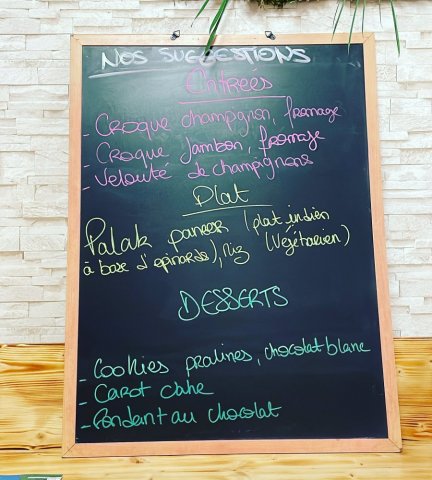 Nos suggestions
Entrées
- Croque champignon, fromage
- Croque Jambon, fromage
- Velouté de champignons
Plat
Palak paneer (plat indien
à base d'epinards), Riz (Végétarien)
DESSERTS
- Cookies pralines, chocolat blanc
- Carot cake
- Fondant au chocolat